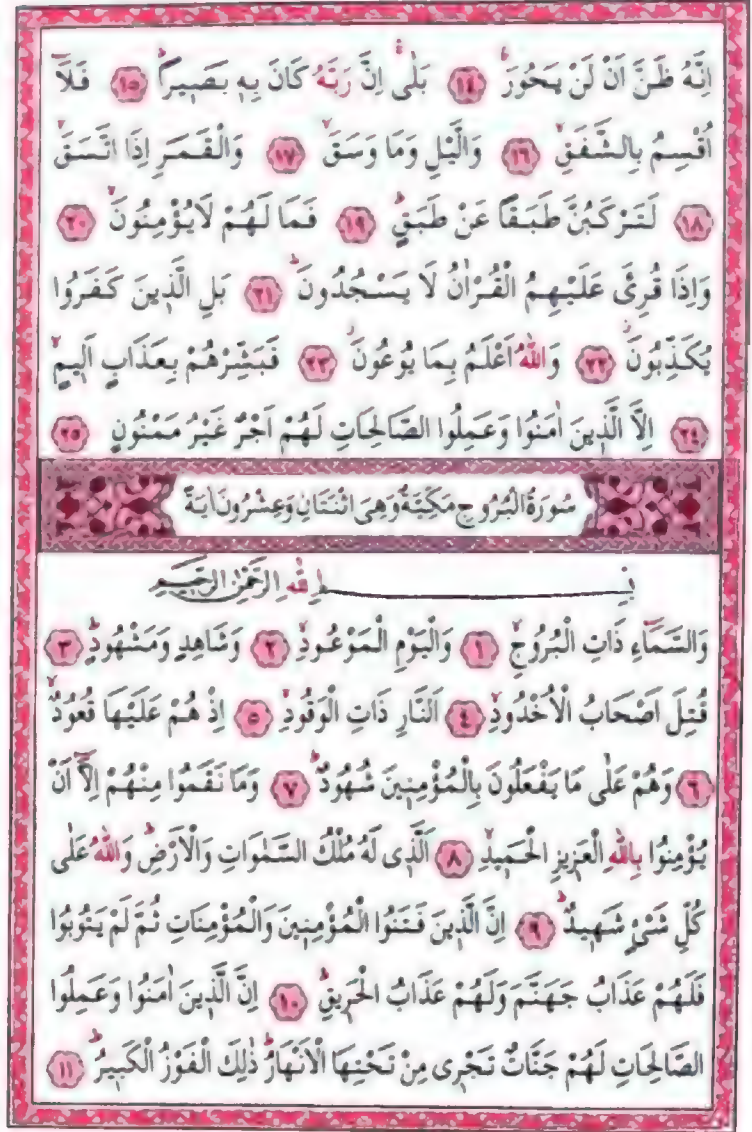 اِنَّهُ ظَنَّ اَنْ لَنْ يَحُورَۚ ﴿١٤﴾ بَلٰىۚ اِنَّ رَبَّهُ كَانَ بِهٖ بَصٖيراًؕ ﴿١٥﴾ فَلَٓا
اُقْسِمُ بِالشَّفَقِۙ ﴿١٦﴾ وَالَّيْلِ وَمَا وَسَقَۙ ﴿١٧﴾ وَالْقَمَرِ اِذَا اتَّسَقَۙ
﴿١٨﴾ لَتَرْكَبُنَّ طَبَقاً عَنْ طَبَقٍؕ ﴿١٩﴾ فَمَا لَهُمْ لَا يُؤْمِنُونَۙ ﴿٢٠﴾
وَاِذَا قُرِئَ عَلَيْهِمُ الْقُرْاٰنُ لَا يَسْجُدُونَؕ ﴿٢١﴾ بَلِ الَّذٖينَ كَفَرُوا
يُكَذِّبُونَۘ ﴿٢٢﴾ وَاللّٰهُ اَعْلَمُ بِمَا يُوعُونَۘ ﴿٢٣﴾ فَبَشِّرْهُمْ بِعَذَابٍ اَلٖيمٍۙ
﴿٢٤﴾ اِلَّا الَّذٖينَ اٰمَنُوا وَعَمِلُوا الصَّالِحَاتِ لَهُمْ اَجْرٌ غَيْرُ مَمْنُونٍ ﴿٢٥﴾
سُورَةُ الْبُرُوجِ مَكِّيَّةٌ وَهِىَ اثْنَتَانِ وَعِشْرُونَ اٰيَةً
بِسْمِ اللّٰهِ الرَّحْمٰنِ الرَّحٖيمِ
وَالسَّمَٓاءِ ذَاتِ الْبُرُوجِۙ ﴿١﴾ وَالْيَوْمِ الْمَوْعُودِۙ ﴿٢﴾ وَشَاهِدٍ وَمَشْهُودٍؕ ﴿٣﴾
قُتِلَ اَصْحَابُ الْاُخْدُودِۙ ﴿٤﴾ اَلنَّارِ ذَاتِ الْوَقُودِۙ ﴿٥﴾ اِذْ هُمْ عَلَيْهَا قُعُودٌۙ
﴿٦﴾ وَهُمْ عَلٰى مَا يَفْعَلُونَ بِالْمُؤْمِنٖينَ شُهُودٌؕ ﴿٧﴾ وَمَا نَقَمُوا مِنْهُمْ اِلَّٓا اَنْ
يُؤْمِنُوا بِاللّٰهِ الْعَزٖيزِ الْحَمٖيدِۙ ﴿٨﴾ اَلَّذٖى لَهُ مُلْكُ السَّمٰوَاتِ وَالْاَرْضِؕ وَاللّٰهُ عَلٰى
كُلِّ شَىْءٍ شَهٖيدٌؕ ﴿٩﴾ اِنَّ الَّذٖينَ فَتَنُوا الْمُؤْمِنٖينَ وَالْمُؤْمِنَاتِ ثُمَّ لَمْ يَتُوبُوا
فَلَهُمْ عَذَابُ جَهَنَّمَ وَلَهُمْ عَذَابُ الْحَرٖيقِؕ ﴿١٠﴾ اِنَّ الَّذٖينَ اٰمَنُوا وَعَمِلُوا
الصَّالِحَاتِ لَهُمْ جَنَّاتٌ تَجْرٖى مِنْ تَحْتِهَا الْاَنْهَارُؕ ذٰلِكَ الْفَوْزُ الْكَبٖيرُؕ ﴿١١﴾